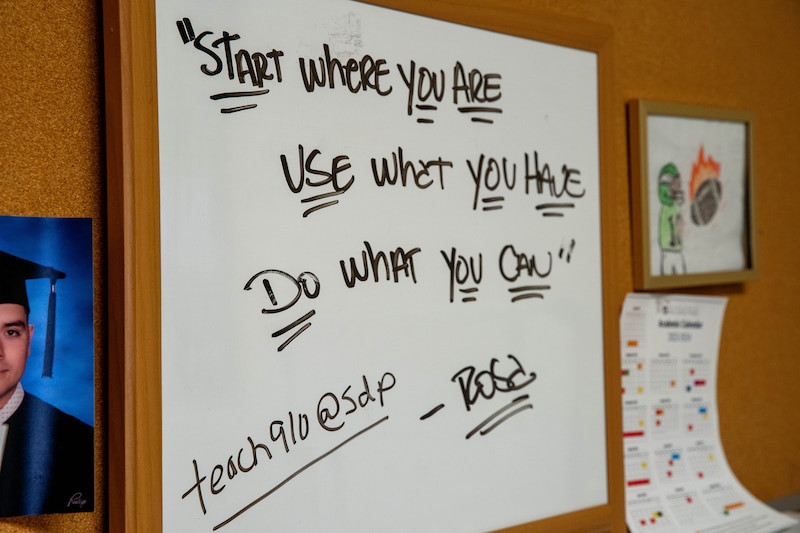 "START WHERE YOU ARE
USE WHAT YOU HAVE
DO WHAT YOU CAN"
- ROSA
teach910@sdp
Academic Calendar